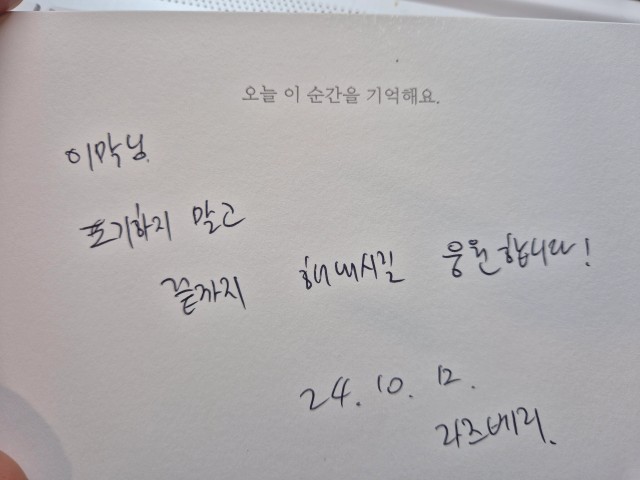 오늘 이 순간을 기억해요.
이막님.
포기하지 말고
끝까지 해내시길 응원합니다!
24. 10. 12.
라즈베리.